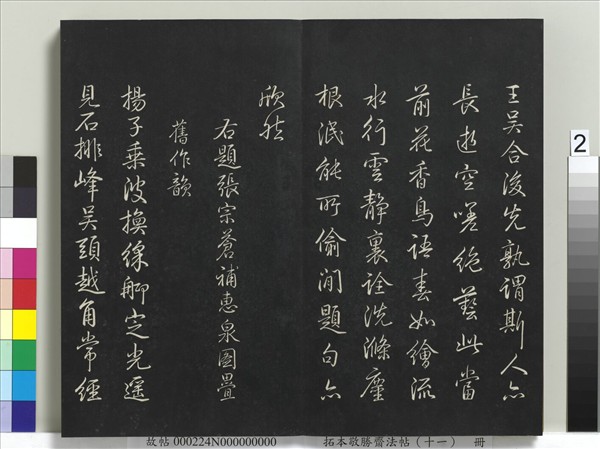 王吳合後先孰謂斯人亦
長逝空嗟絕藝此當
前花香鳥語春如繪流
水行雲靜裏詮洗滌塵
根泯能所偷閒題句亦
欣然
右題張宗蒼補惠泉圖疊
舊作韻
揚子乘波換綵定光遥
見石排峰吳頭越角常經
2
故帖 000224N000000000 拓本敬勝齋法帖（十一） 冊